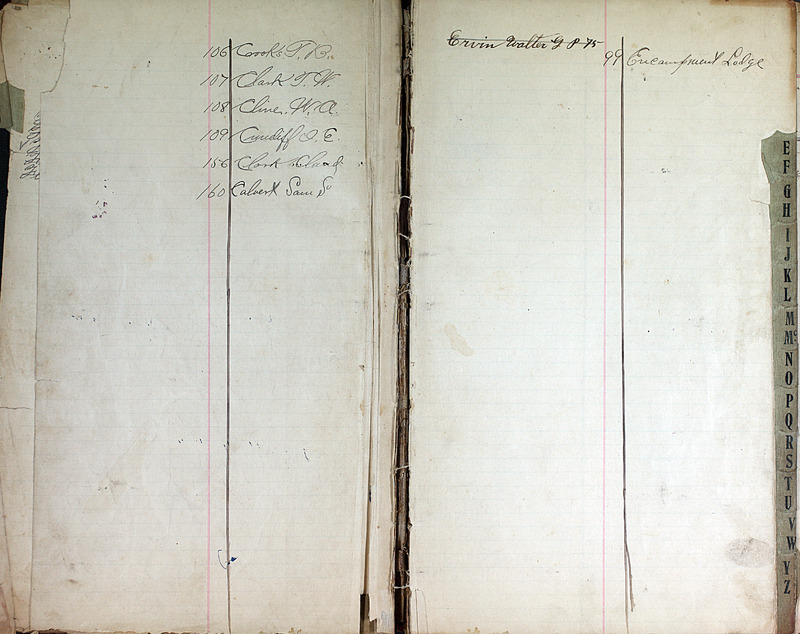 106 Crooks T. B.
107 Clark T. W.
108 Cline, W. A.
109 Cundiff I. E.
156 Clark
160 Calvert Sam
Ervin Walter G P 75
99 Encampment Lodge
E
F
G
H
I
J
K
L
M
Mc
N
O
P
Q
R
S
T
U
V
W
Y
Z